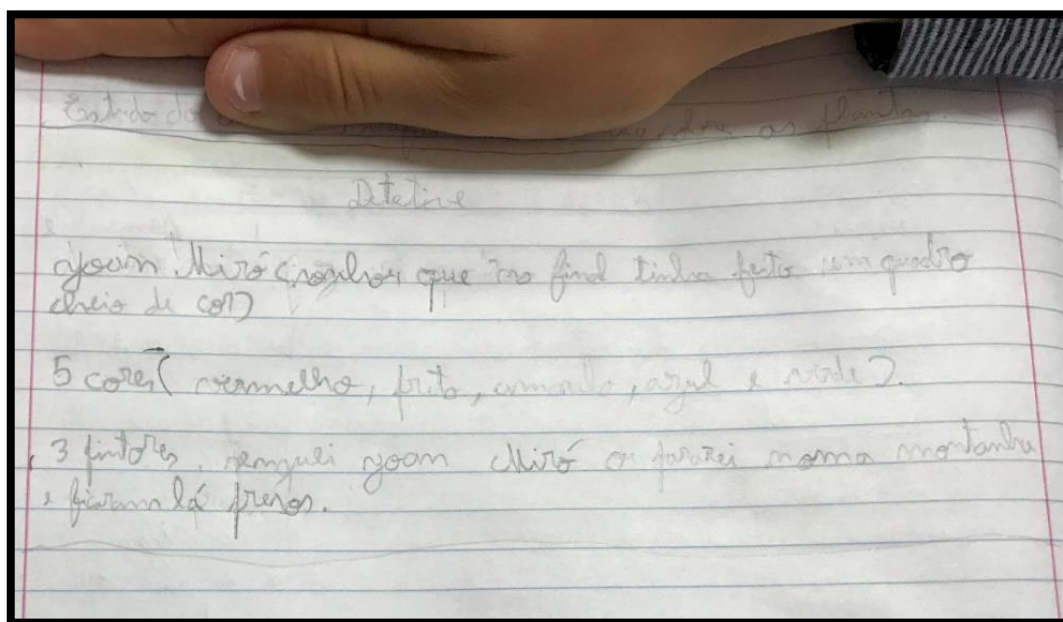 as plantas.
Detetive
Joan Miró (sonhou que no final tinha feito um quadro
cheio de cor)
5 cores (vermelho, preto, amarelo, azul e verde).
3 pintores. Joan Miró os numa montanha
e ficaram lá presos.